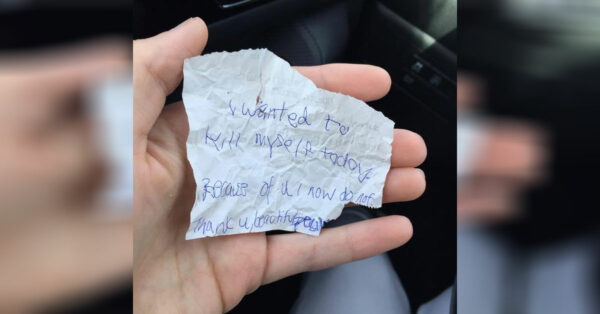 i wanted to
kill myself today
Because of u i now do not
thank u beautiful